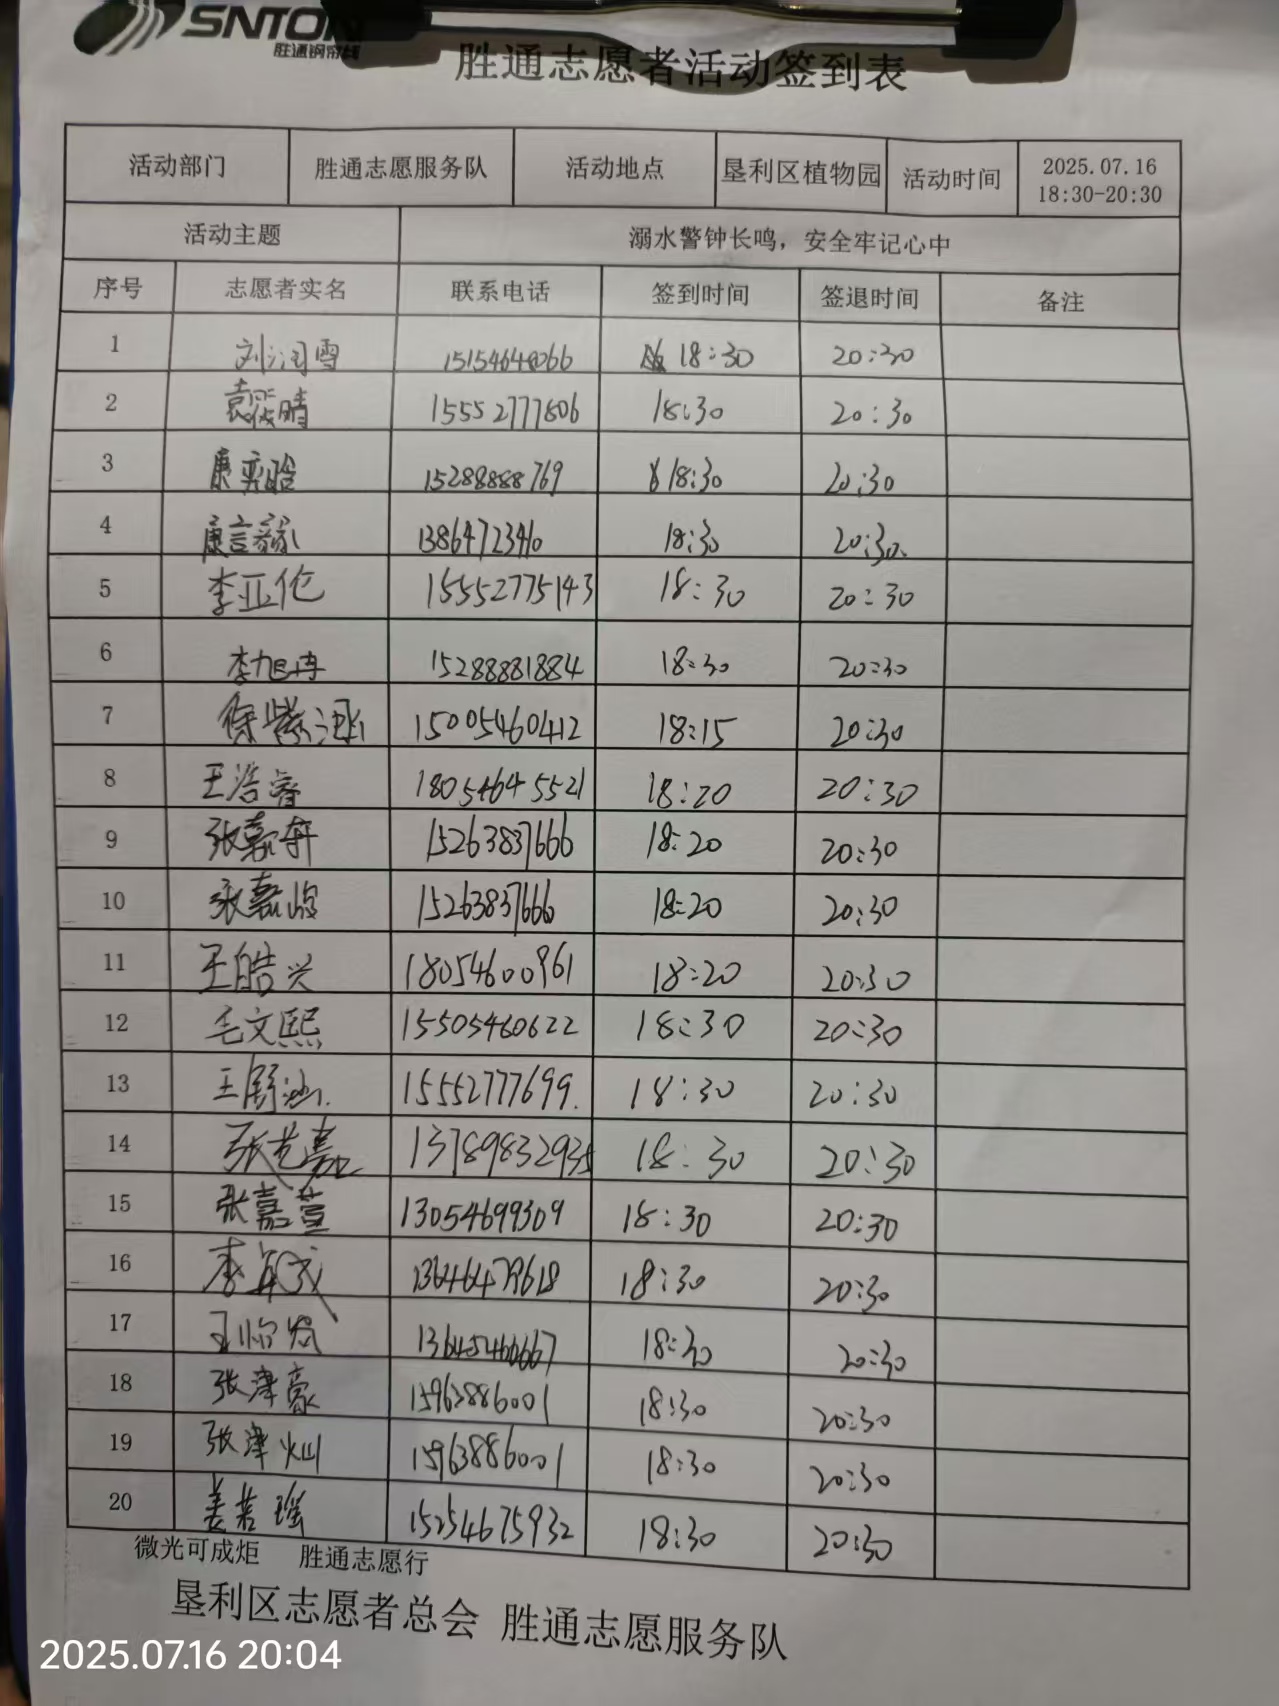 SNTON
胜通钢帘线
胜通志愿者活动签到表
活动部门 胜通志愿服务队 活动地点 垦利区植物园 活动时间 2025.07.16 18:30-20:30
活动主题 溺水警钟长鸣，安全牢记心中
序号 志愿者实名 联系电话 签到时间 签退时间 备注
1 刘润雪 15154640066 18:30 20:30
2 袁筱晴 15552777806 18:30 20:30
3 康奕晗 15288888769 18:30 20:30
4 康言 1386472340 18:30 20:30
5 李亚伦 15552775143 18:30 20:30
6 李旭冉 15288881884 18:30 20:30
7 徐紫涵 15005460412 18:15 20:30
8 王浩睿 18054645521 18:20 20:30
9 张嘉轩 15263837666 18:20 20:30
10 张嘉峻 15263837666 18:20 20:30
11 王皓兴 18054600961 18:20 20:30
12 毛文熙 15505460622 18:30 20:30
13 王舒涵 15552777699 18:30 20:30
14 张艺嘉 13789832935 18:30 20:30
15 张嘉萱 13054699309 18:30 20:30
16 李 13646479618 18:30 20:30
17 王怡 13645466667 18:30 20:30
18 张津豪 15963886001 18:30 20:30
19 张津灿 15963886001 18:30 20:30
20 姜若瑶 15254675932 18:30 20:30
微光可成炬 胜通志愿行
垦利区志愿者总会 胜通志愿服务队
2025.07.16 20:04